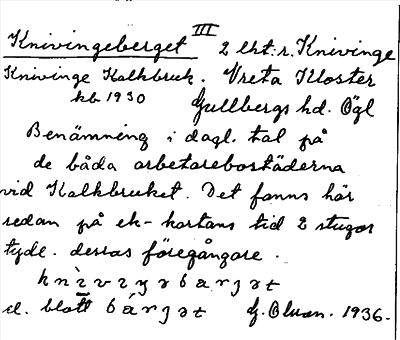 III
Knivingeberget 2 lht:r. Knivinge
Knivinge Kalkbruk. Vreta Kloster
kb 1930 Gullbergs hd. Ögl
Benämning i dagl. tal på
de båda arbetarebostäderna
vid Kalkbruket. Det fanns här
redan på ek-kartans tid 2 stugor
tyde. dessas föregångare.
el. blott G. Olsson. 1936.